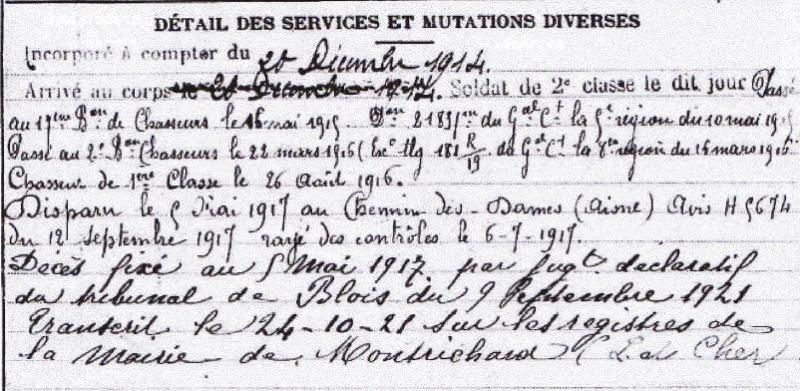 DÉTAIL DES SERVICES ET MUTATIONS DIVERSES
Incorporé à compter du 20 Décembre 1914.
Arrivé au corps le Décembre Soldat de 2e classe le dit jour Passé
au 19ème Bon de Chasseurs le 16 mai 1915 Don 2183/m du Gal Ct la 5e région du 10 mai 1915
Passé au 2e Bon Chasseurs le 22 mars 1916 ( 181 R/19 du Gal Ct la 8e région du 15 mars 1916
Chasseur de 1ère Classe le 26 Août 1916.
Disparu le 5 Mai 1917 au Chemin des-Dames (Aisne) Avis H 5674
du 12 septembre 1917 rayé des contrôles le 6-7-1917.
Décès fixé au 5 Mai 1917 par jugt déclaratif
du tribunal de Blois du 9 Septembre 1921
Transcrit le 24-10-21 sur les registres de
la Mairie de Montrichard (L. et Cher